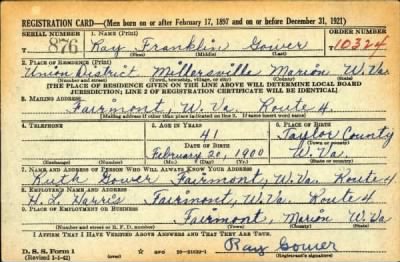 REGISTRATION CARD—(Men born on or after February 17, 1897 and on or before December 31, 1921)
SERIAL NUMBER 1. NAME (Print) ORDER NUMBER
876 Ray Franklin Gower 10324
(First) (Middle) (Last)
2. PLACE OF RESIDENCE (Print)
Union District Millersville Marion W. Va.
(Number and street) (Town, township, village, or city) (County) (State)
[THE PLACE OF RESIDENCE GIVEN ON THE LINE ABOVE WILL DETERMINE LOCAL BOARD
JURISDICTION; LINE 2 OF REGISTRATION CERTIFICATE WILL BE IDENTICAL]
3. MAILING ADDRESS
Fairmont, W. Va. Route 4
[Mailing address if other than place indicated on line 2. If same insert word same]
4. TELEPHONE 5. AGE IN YEARS 6. PLACE OF BIRTH
41 Taylor County
DATE OF BIRTH (Town or county)
February 20, 1900 W. Va.
(Exchange) (Number) (Mo.) (Day) (Yr.) (State or country)
7. NAME AND ADDRESS OF PERSON WHO WILL ALWAYS KNOW YOUR ADDRESS
Ruth Gower Fairmont, W. Va. Route 4
8. EMPLOYER'S NAME AND ADDRESS
H. L. Harris Fairmont, W. Va. Route 4
9. PLACE OF EMPLOYMENT OR BUSINESS
Fairmont, Marion W. Va
(Number and street or R. F. D. number) (Town) (County) (State)
I AFFIRM THAT I HAVE VERIFIED ABOVE ANSWERS AND THAT THEY ARE TRUE.
D. S. S. Form 1 GPO Ray Gower
(Revised 1-1-42) (Registrant's signature)